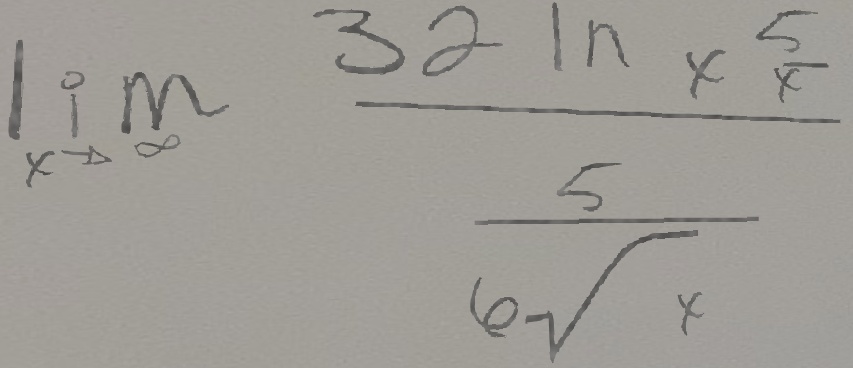 lim x→∞ 32 ln x 5/x
5
6√x